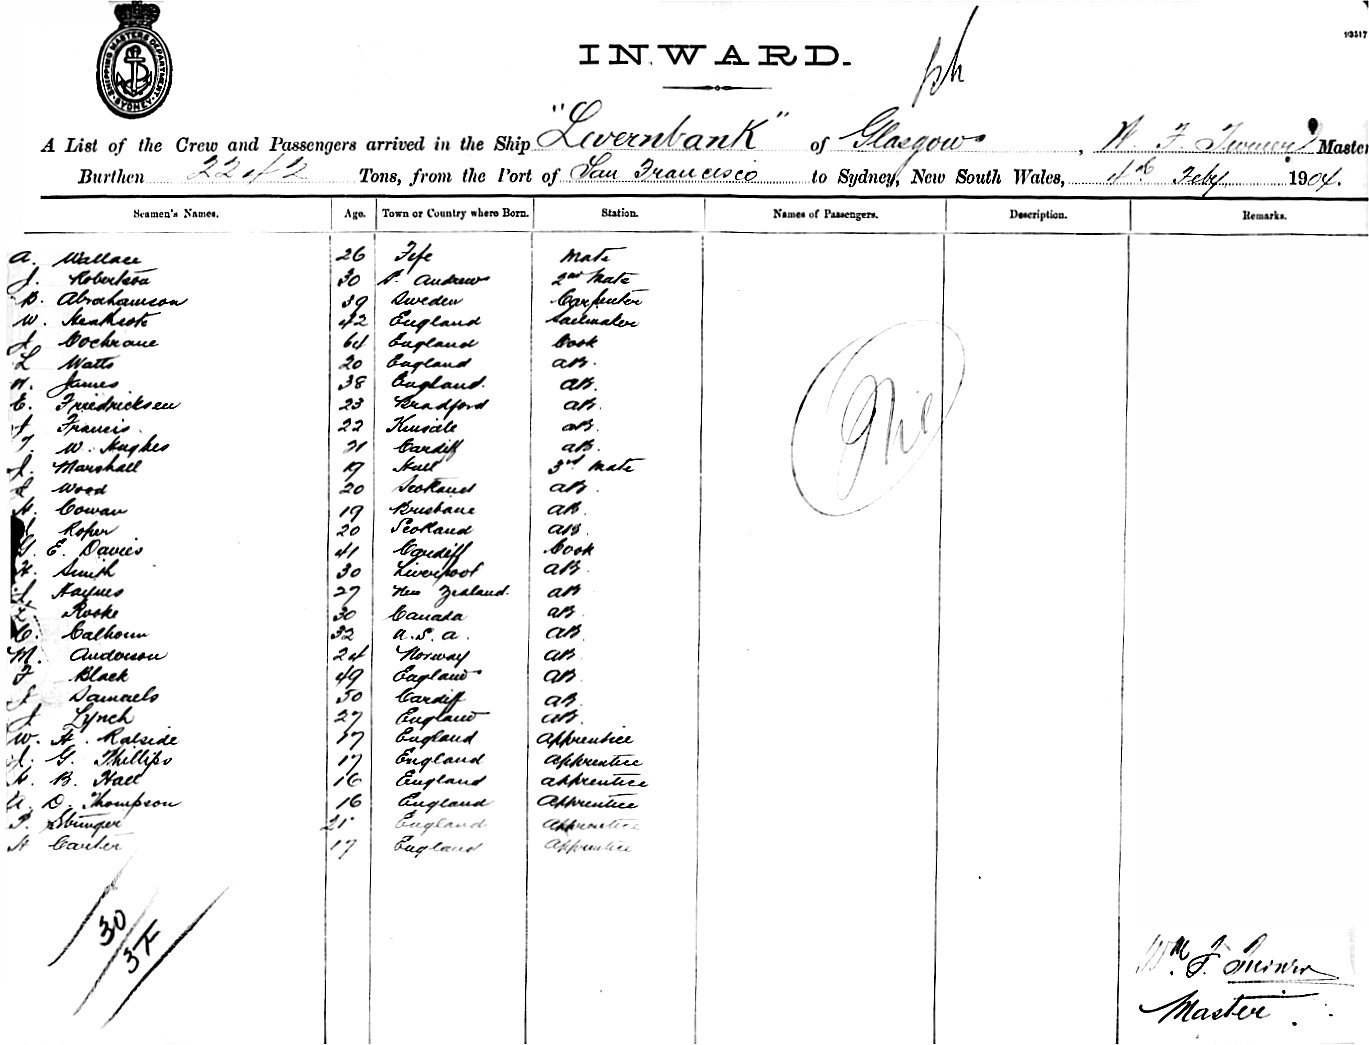 SHIPPING MASTERS DEPARTMENT SYDNEY
INWARD.
93517
A List of the Crew and Passengers arrived in the Ship "Levernbank" of Glasgow, W. F. Master
Burthen 2242 Tons, from the Port of San Francisco to Sydney, New South Wales, 4th Feby 1904.
Seamen's Names. Age. Town or Country where Born. Station. Names of Passengers. Description. Remarks.
A. Wallace 26 Fife Mate
J. Robertson 30 St. Andrews 2nd Mate
B. Abrahamson 39 Sweden Carpenter
W. Heathcote 42 England Sailmaker
J. Cochrane 64 England Cook
L Watts 20 England AB.
H. James 38 England. AB.
E. Friedricksen 23 Bradford AB.
J Francis. 22 Kinsale AB.
T. W. Hughes 21 Cardiff AB.
J. Marshall 19 Hull 3rd Mate
Wood 20 Scotland AB.
H. Cowan 19 Brisbane AB.
Roper 20 Scotland AB.
G. E. Davies 41 Cardiff Cook
F. Smith 30 Liverpool AB.
Haynes 27 New Zealand. AB
Rooke 30 Canada AB.
C. Calhoun 32 U.S.A. AB.
M. Anderson 24 Norway AB.
F Black 49 England AB.
J Samuels 30 Cardiff AB.
J Lynch 27 England AB.
W. H. Ralside 17 England Apprentice
J. G. Phillips 17 England Apprentice
H. B. Hall 16 England Apprentice
A. D. Thompson 16 England Apprentice
P. 21 England Apprentice
H Carter 17 England Apprentice
Nil
30
3F
Wm. F.
Master.